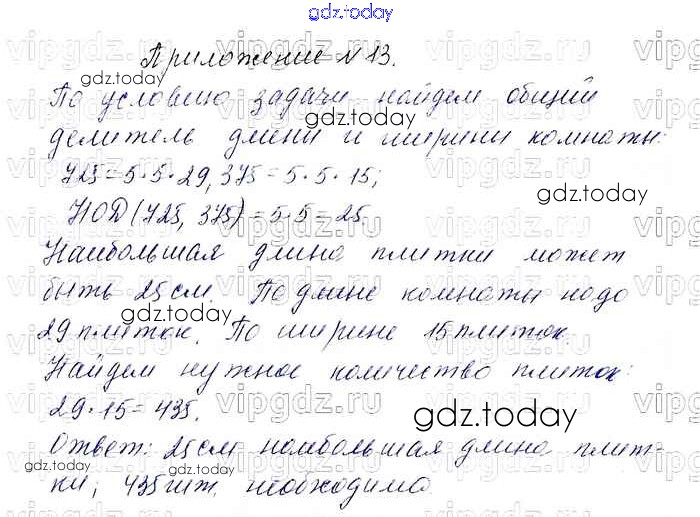 gdz.today
Приложение №13.
gdz.today
По условию задачи найдем общий
gdz.today
делитель длины и ширины комнаты:
725=5·5·29, 375=5·5·15;
gdz.today
НОД(725, 375)=5·5=25.
Наибольшая длина плитки может
быть 25см. По длине комнаты надо
gdz.today
29 плиток. По ширине 15 плиток.
Найдем нужное количество плиток:
29·15=435.
gdz.today
Ответ: 25см наибольшая длина плит-
gdz.today
ки; 435 шт. необходимо.
vipgdz.ru